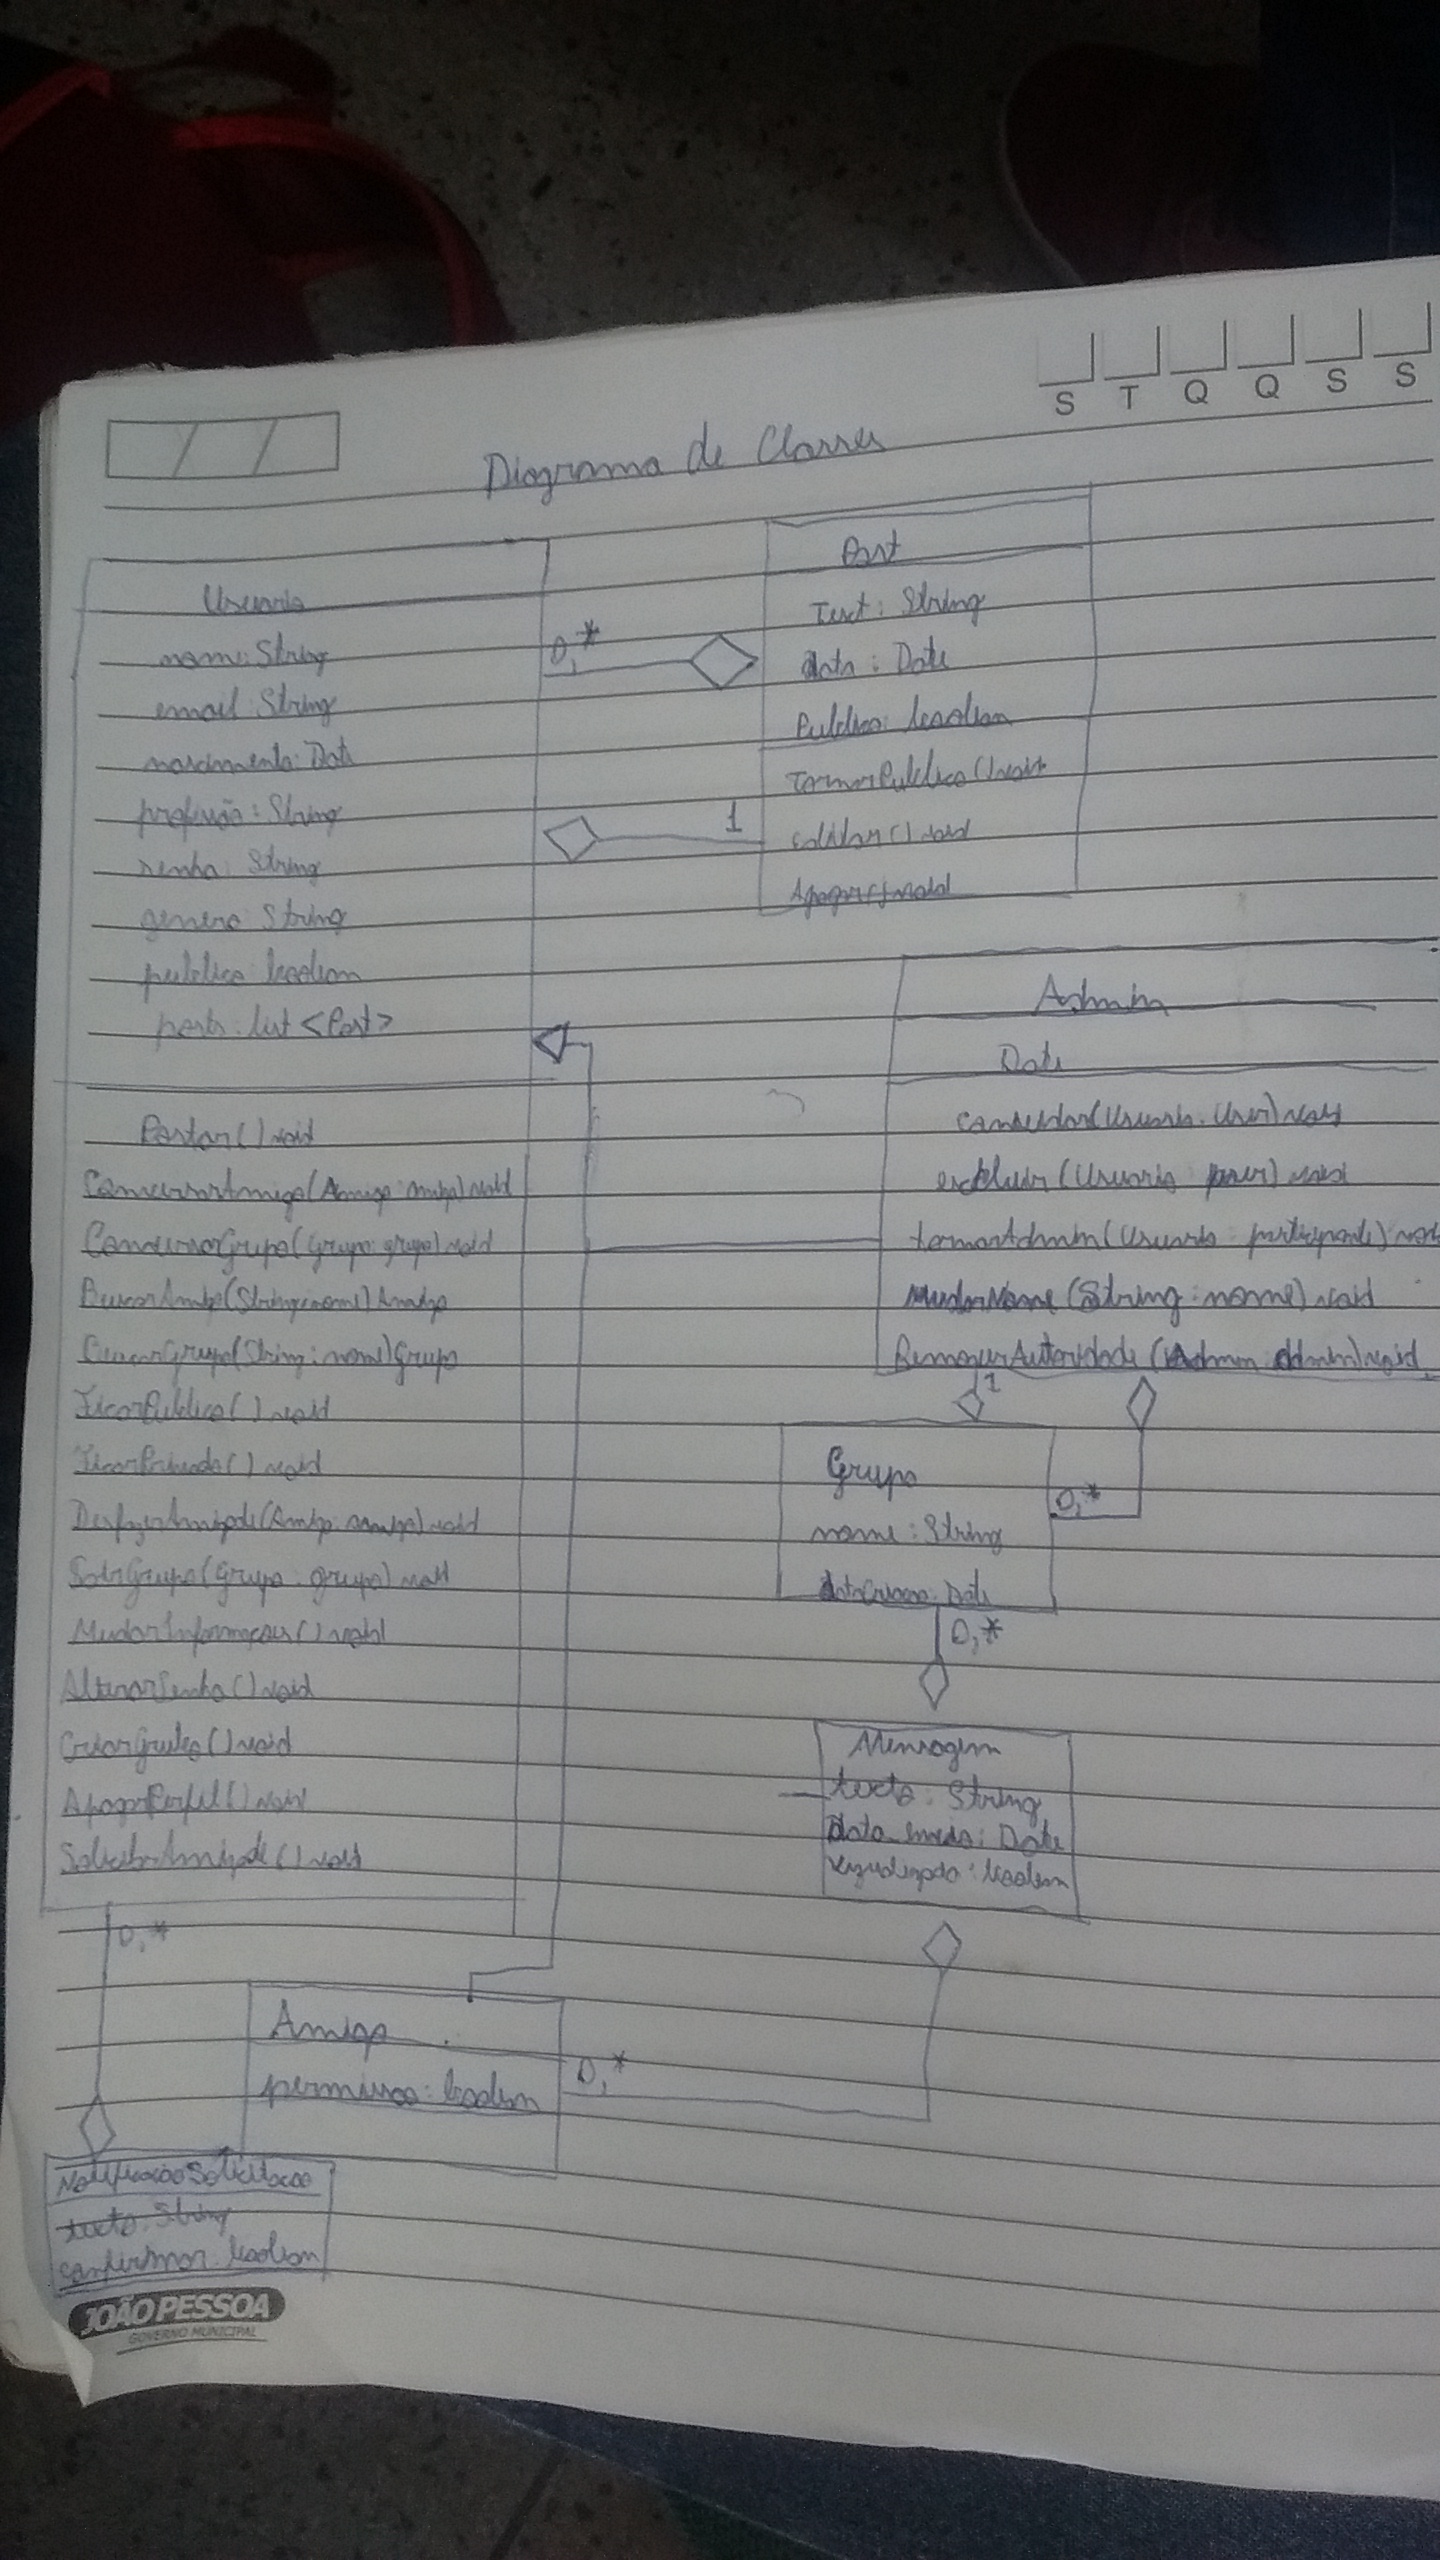 S T Q Q S S
Diagrama de Classes
Usuario
nome: String
email: String
nascimento: Date
profissão: String
senha: String
genero String
publico boolean
posts: list <Post>
Postar() void
ConversarAmigo(Amigo: amigo) void
ConversaGrupo(Grupo: grupo) void
BuscarAmigo(String: nome) Amigo
BuscarGrupo(String: nome) Grupo
FicarPublico() void
FicarPrivado() void
DesfazerAmizade(Amigo: amigo) void
SairGrupo(Grupo: grupo) void
MudarInformaçoes() void
AlterarSenha() void
CriarGrupo() void
ApagarPerfil() void
SolicitarAmizade() void
0,*
1
Post
Text: String
data: Date
Publico: boolean
TornarPublico() void
editar() void
Apagar() void
Admin
Date
convidar(Usuario: User) void
excluir (Usuario
tornarAdmin(Usuario: participante)
MudarNome (String: nome) void
RemoverAutoridade (Admin: admin) void
1
Grupo
nome: String
dataCriacao: Date
0,*
0,*
Mensagem
texto: String
Data envio: Date
Vizualizado: boolean
0,*
Amigo
permissao: boolean
0,*
NotificacaoSolicitacao
texto: String
confirmar: boolean
JOÃO PESSOA
GOVERNO MUNICIPAL